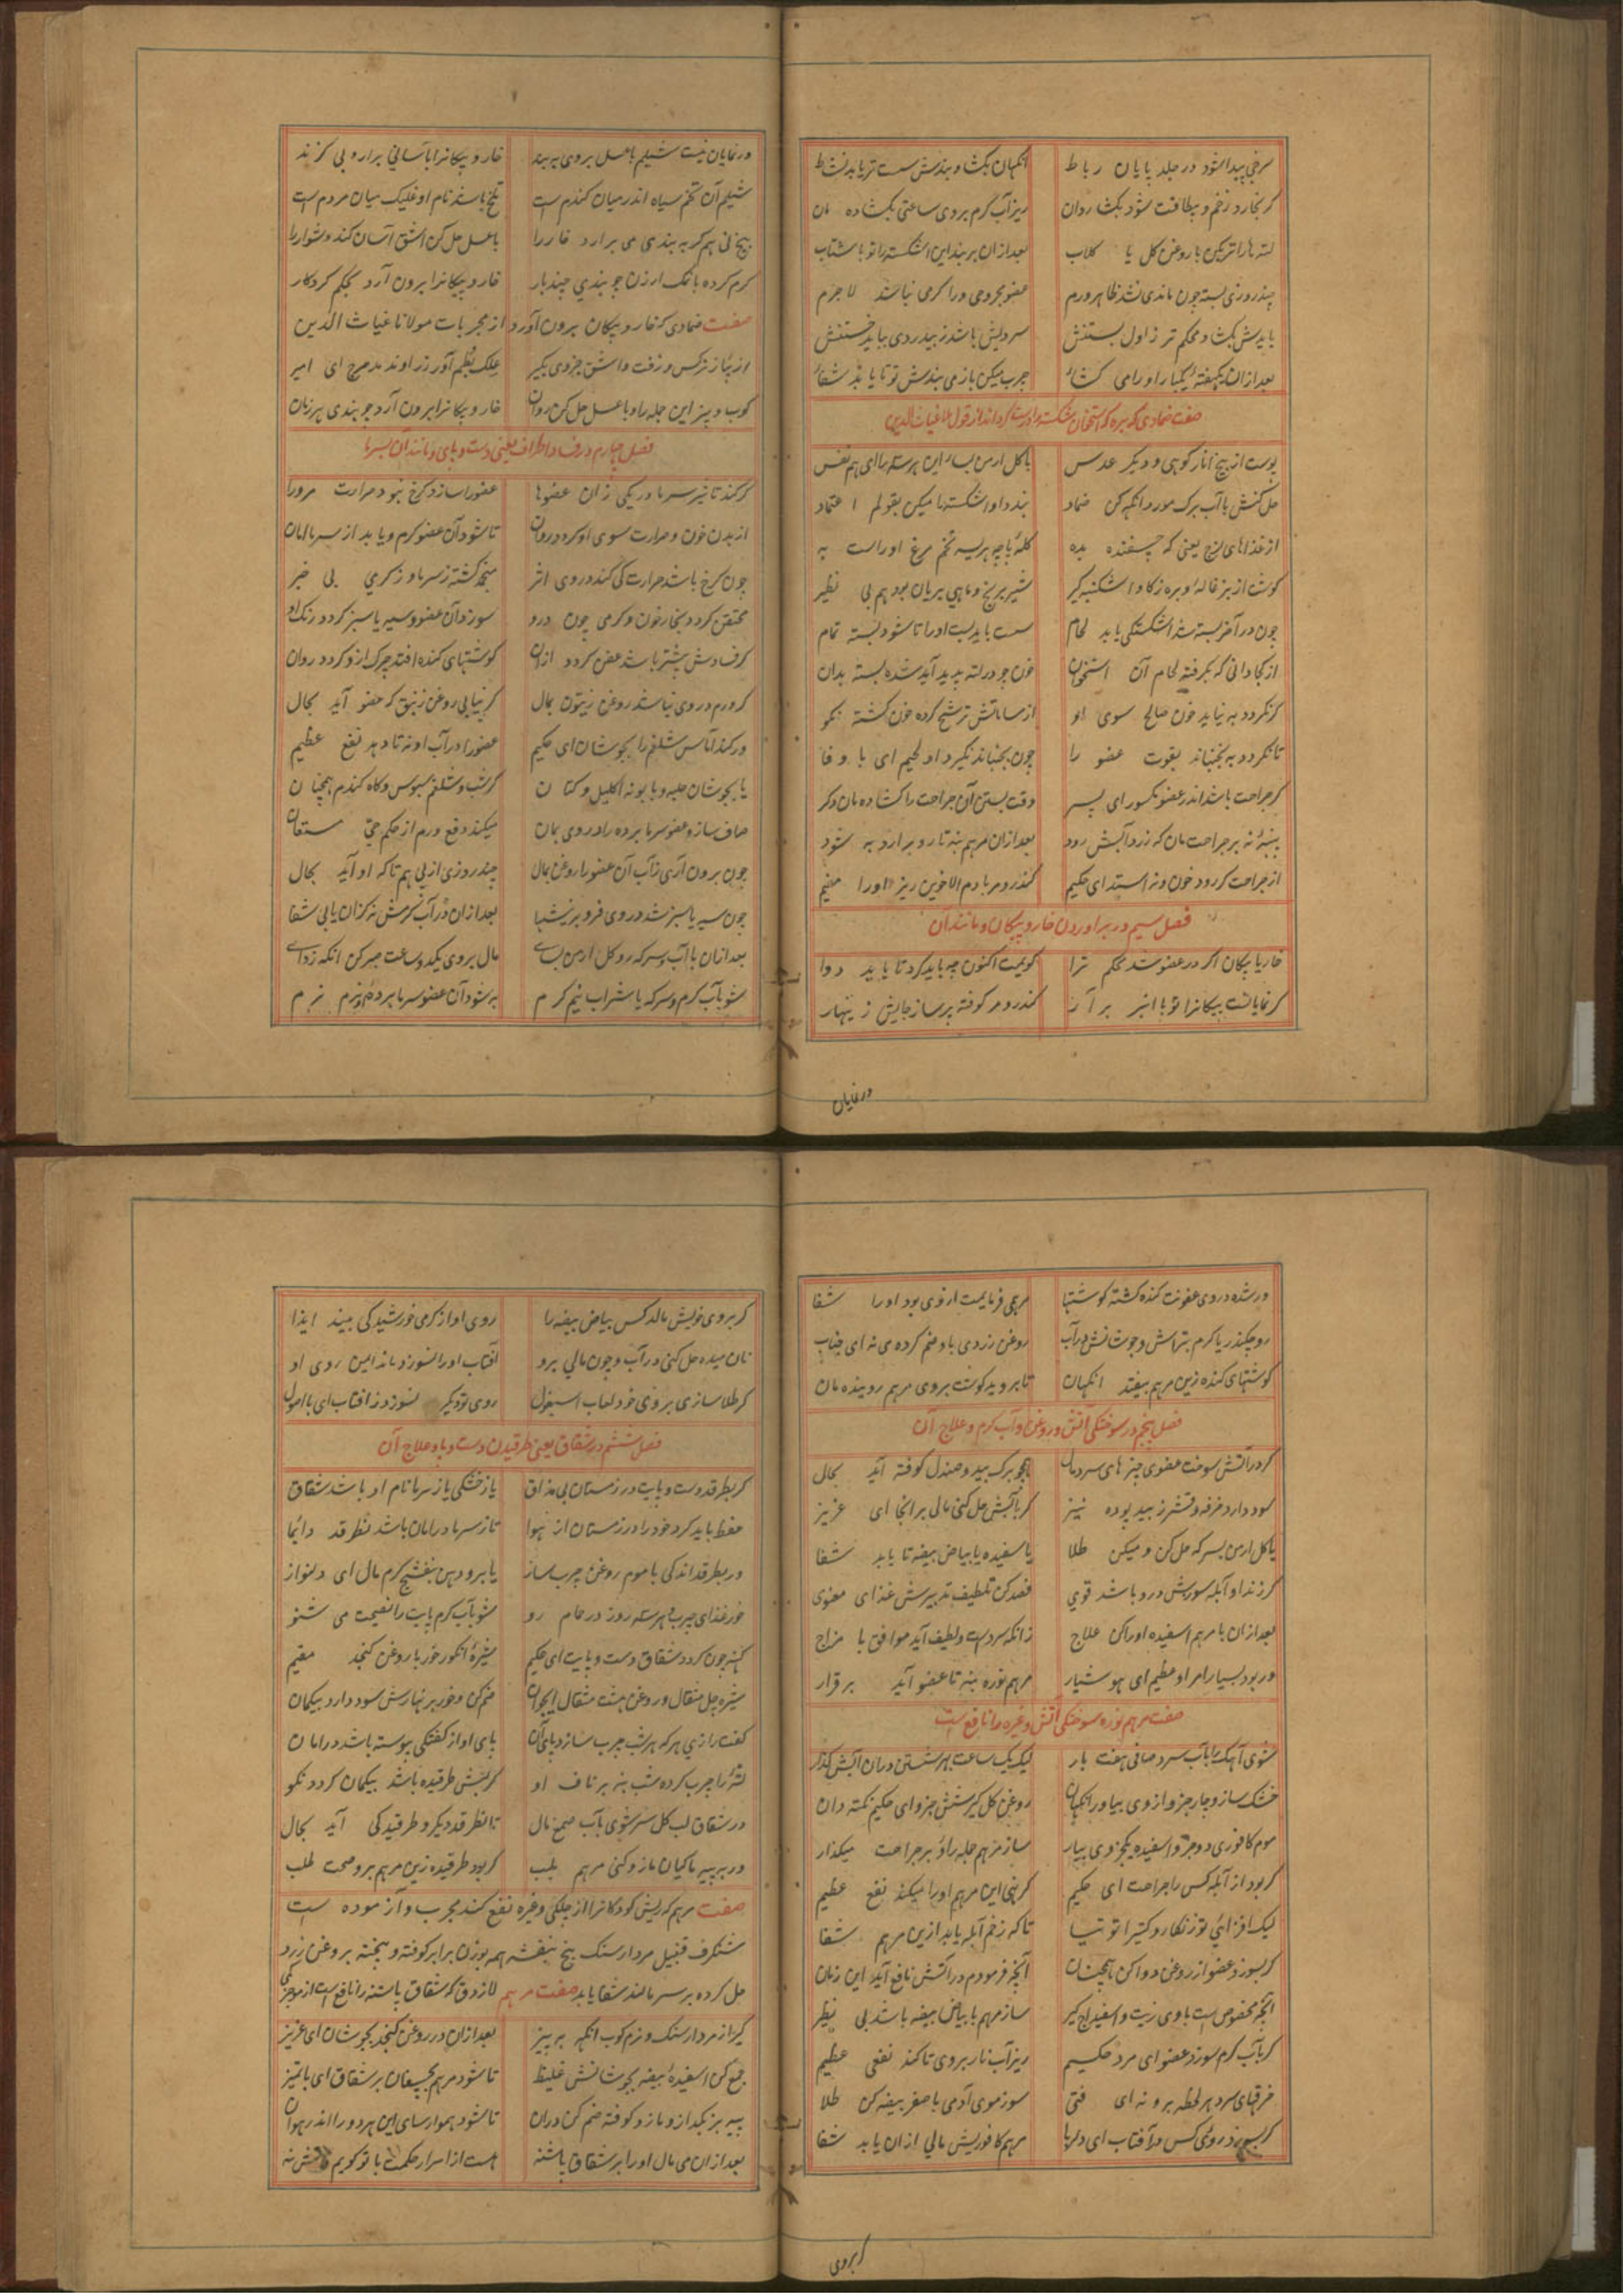 سرخی پیدا شود در جلد پایان رباط آنگهان بکشا و بندش سست تر یابد نشاط
کر بخارد زخم و بیطاقت شود بکشا روان ریز آب کرم بر وی ساعتی بکشاده مان
لته ها را تر بکن با روغن کل یا کلاب بعد ازان بر بند این اشکسته را تو با شتاب
چند روزی بسته چون ماندی نشد ظاهر ورم عضو مجروحی ورا کرمی نباشد لاجرم
بایدش بکشاد محکم تر ز اول بستنش
بعد ازان یکهفته یکبار او را می کشا چرب میکن باز می بندش تو تا یابد شفا
صفت ضمادی که استخوان شکسته را درست کرداند از قول ملا غیاث الدین
پوست از بیخ انار کوهی و دیکر عدس با کل ارمن بسا این هرسه را ای هم نفس
حل کنش با آب برک مورد آنکه کن ضماد بند و او اشکسته را میکن بقولم اعتماد
از غذاهای لزج یعنی که چسفنده بده کله پاچه هریسه تخم مرغ او راست به
کوشت از بزغاله و بره ز کاو اشکنبه کیر شیر برنج و ماهی بریان بود هم بی نظیر
چون در آخر بسته شد اشکستکی یابد لحام سست باید بست او را تا شود بسته تمام
از کجا دانی که بکرفته لحام آن استخوان خون چو در لته پدید آید شده بسته بدان
کر نکردد به نیاید خون صالح سوی او از مساماتش ترشح کرده خون کشته نکو
تا نکردد به بجنباند بقوت عضو را چون بجنباند نکیرد او لحیم ای با وفا
کر جراحت باشد اندر عضو مکسور ای پسر وقت بستن آن جراحت را کشاده مان دکر
پنبه نه بر جراحت مان که زرد آبش رود بعد ازان مرهم بنه تا رو برارد به شود
از جراحت کر رود خون و نه استد ای حکیم کندر و مر با دم الاخوین ریز او را مقیم
فصل سیم در براوردن خار و پیکان و مانند آن
خار یا پیکان اکر در عضو شد محکم ترا کویمت اکنون چه باید کرد تا یابد دوا
کر نمایانست پیکانرا تو با انبر برآر کندر و مر کوفته پر ساز جایش زینهار
در نمایان
ور نمایان نیست شیلم با عسل بر وی ببند خار و پیکانرا بآسانی برارد بی کزند
شیلم آن تخم سیاه اندر میان کندم است تلخ باشد نام او غلیک میان مردم است
بیخ نی هم کر به بندی می برارد خار را با عسل حل کن اشق آسان کند دشوار را
کرم کرده بانک ارزن چو بندی چند بار خار و پیکانرا برون آرد بحکم کردکار
صفت ضمادی که خار و پیکان برون آورد از مجربات مولانا غیاث الدین
از پیاز نرکس و زفت و اشق جزوی بکیر علک بطم آور زراوند مدحرج ای امیر
کوب و بیز این جمله را و با عسل حل کن روان خار و پیکانرا برون آرد چو بندی هر زمان
فصل چهارم در فساد اطراف یعنی دست و پای و مانند آن بسرما
کر کند تاثیر سرما در یکی زان عضوها عضو را سازد کرخ نبود حرارت مرورا
از بدن خون و حرارت سوی او کردد روان تا شود آن عضو کرم و یابد از سرما امان
چون کرخ باشد حرارت کی کند در وی اثر منجمد کشته ز سرما و ز کرمی بی خبر
محتقن کردد بخار خون و کرمی چون درو سوزد آن عضو و سیه یا سبز کردد رنک او
کر فسادش بیشتر باشد عفن کردد ازان کوشتهای کنده افتد چرک ازو کردد روان
کر ورم در وی نباشد روغن زیتون بمال کر نیابی روغن زنبق که عضو آید بحال
ور کند آماس شلغم را بجوشان ای حکیم عضو را در آب او نه تا دهد نفع عظیم
یا بجوشان حلبه و بابونه اکلیل و کتان کرنب و شلغم سبوس و کاه کندم همچنان
صاف ساز و عضو سرما برده را در وی بمان میکند دفع ورم از حکم حی مستعان
چون برون آری ز آب آن عضو را روغن بمال چند روزی از پی هم تا که او آید بحال
چون سیه یا سبز شد در وی فرو بر نیشها بعد ازان در آب کرمش نه کزان یابی شفا
بعد ازان با آب و سرکه رو کل ارمن بسای مال بر وی یکدو ساعت صبر کن آنکه زدای
شو بآب کرم و سرکه یا شراب نیم کرم به شود آن عضو سرما برده نرم نرم
ور شده در وی عفونت کنده کشته کوشتها مرهمی فرمایمت از وی بود او را شفا
رو چکندر یا کرم بتراش و جوشانش در آب روغن زردی باو ضم کرده می نه ای جناب
کوشتهای کنده زین مرهم بیفتد آنکهان تا بروید کوشت بر وی مرهم روینده مان
فصل پنجم در سوختکی آتش و روغن و آب کرم و علاج آن
کر در آتش سوخت عضوی چیزهای سرد مال همچو برک بید و صندل کوفته آید بحال
سود دارد خرفه و قشر ز بید پوده نیز کر بآبش حل کنی مالی بر آنجا ای عزیز
یا کل ارمن بسرکه حل کن و میکن طلا یا سفیده یا بیاض بیضه تا یابد شفا
کر زند او آبله سوزش درد باشد قوی فصد کن تلطیف تدبیرش غذای معنوی
بعد ازان با مرهم اسفیده او را کن علاج زانکه سرد است و لطیف آید موافق با مزاج
ور بود بسیار امر او عظیم ای هوشیار مرهم نوره بنه تا عضو آید برقرار
صفت مرهم نوره سوختکی آتش و غیره را نافع است
شوی آهک را بآب سرد صافی هفت بار لیک یک ساعت بهر شستن دران آبش کذار
خشک ساز و چار جزو از وی بیاور آنکهان روغن کل کیر شش جزو ای حکیم نکته دان
موم کافوری دو جزو اسفیده یک جزوی بیار ساز مرهم جمله را و بر جراحت میکذار
کر بود از آبله کس را جراحت ای حکیم کر نهی این مرهم او را میکند نفع عظیم
لیک افزائی تو زنکار و کتیرا توتیا تا که زخم آبله یابد ازین مرهم شفا
کر بسوزد عضو از روغن دوا کن همچنان آنچه فرمودم در آتش نافع آید این زمان
آنچه مخصوص است باوی زیت و اسفیداج کیر ساز مرهم با بیاض بیضه باشد بی نظیر
کر بآب کرم سوزد عضو ای مرد حکیم ریز آب نار بر وی تا کند نفعی عظیم
خرقهای سرد هر لحظه برو نه ای فتی سوز موی آدمی با صفر بیضه کن طلا
کر بسوزد روی کس در آفتاب ای دلربا مرهم کافوریش مالی ازان یابد شفا
کر بروی
کر بروی خویش مالد کس بیاض بیضه را روی او از کرمی خورشید کی بیند ایذا
نان میده حل کنی در آب و چون مالی برو آفتاب او را نسوزد ماند ایمن روی او
کر طلا سازی بروی خود لعاب اسبغول روی تو دیکر نسوزد ز آفتاب ای با اصول
فصل ششم در شقاق یعنی طرقیدن دست و پا و علاج آن
کر بطرقد دست و پایت در زمستان بی مذاق یا ز خشکی یا ز سرما نام او باشد شقاق
حفظ باید کرد خود را در زمستان از هوا تا ز سرما در امان باشد نطرقد دائما
ور بطرقد اندکی با موم روغن چرب ساز یا برو دهن بنفشج کرم مال ای دلنواز
خور غذای چرب و هر سه روز در حمام رو شو بآب کرم پایت را نصیحت می شنو
کهنه چون کردد شقاق دست و پایت ای حکیم شیره انکور خور با روغن کنجد مقیم
شیره چل مثقال و روغن بیست مثقال ایجوان ضم کن و خور بر نهارش سود دارد بیکمان
کفت رازی هرکه هر شب چرب سازد پای آن پای او از کفتکی پیوسته باشد در امان
لته را چرب کرده شب بنه بر ناف او کر لبش طرقیده باشد بیکمان کردد نکو
در شقاق لب کل سر شوی بآب صمغ مال تا نطرقد دیکر و طرقیدکی آید بحال
ور به پیه ماکیان مازو کنی مرهم بلب کر بود طرقیده زین مرهم برو صحت طلب
صفت مرهم که ریش کودکانرا از چلکی و غیره نفع کند مجرب و آزموده است
شنکرف قنبیل مردارسنک بیخ بنفشه همه بوزن برابر کوفته و بیخته بروغن زرد
حل کرده بر سر مالند شفا یابد صفت مرهم لازوق که شقاق پاشنه را نافع است از موجز
کیر از مردارسنک و نرم کوب آنکه ببیز بعد ازان در روغن کنجد بجوشان ای عزیز
جمع کن اسفیده بیضه بجوشانش غلیظ تا شود مرهم بچسپان بر شقاق ای با تمیز
پیه بز بکداز و مازو کوفته ضم کن دران تا شود هموار سای این هر دو را اندر هوان
بعد ازان می مال او را بر شقاق پاشنه هست از اسرار حکمت با تو کویم